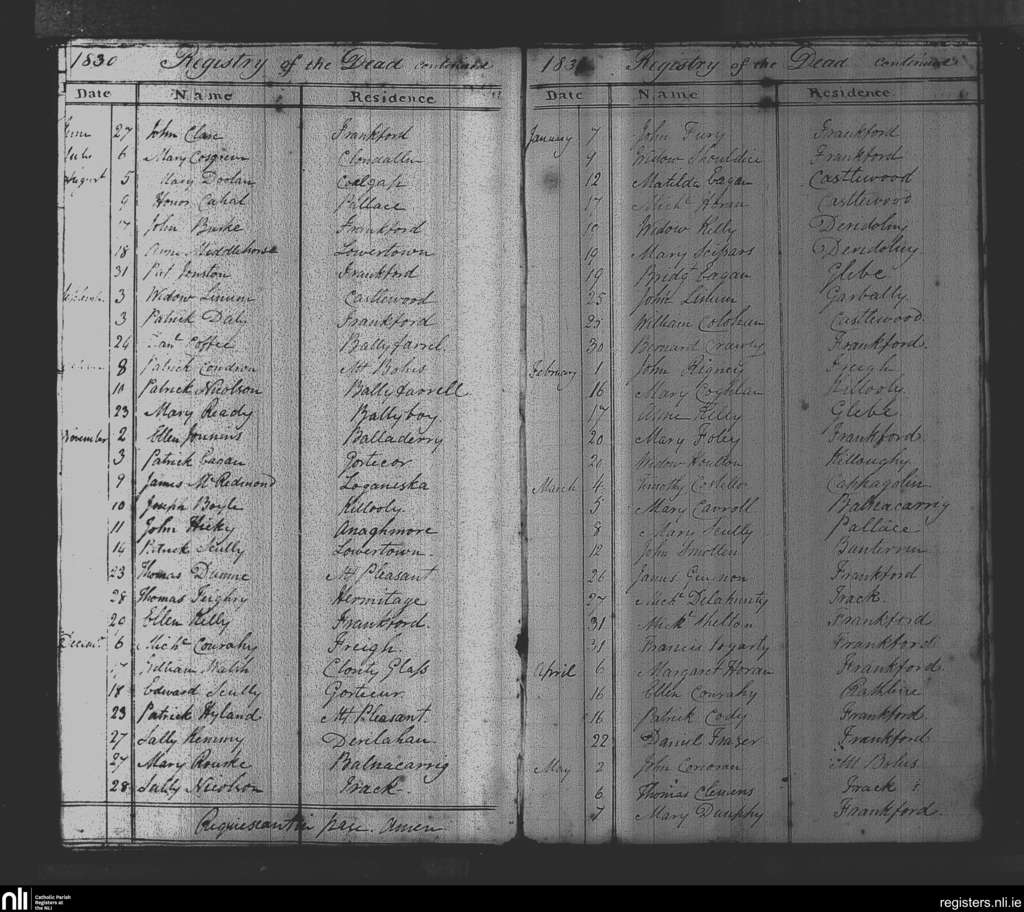 1830 Registry of the Dead continued
Date Name Residence
June 27 John Clare Frankford
July 6 Mary Cosgreve Clondallen
August 5 Mary Doolan Coalgap
9 Honor Cahal Pallace
17 John Burke Frankford
18 Anne Middlehorse Lowertown
31 Pat Jonston Frankford
3 Widow Linum Castlewood
3 Patrick Daly Frankford
26 Coffee Ballyfarrel.
8 Patrick Condron Mt Bolus
10 Patrick Nicolson Ballyfarrell
23 Mary Ready Ballyboy
November 2 Ellen Jonnens Balladerry
3 Patrick Eagan Gortecor
9 James McRedmond Loganiska
10 Joseph Boyle Killooly
11 John Hicky Anaghmore
14 Patrick Scully Lowertown.
23 Thomas Dunne Mt Pleasant
28 Thomas Feighry Hermitage
20 Ellen Kelly Frankford.
6 Michl Courahy Freigh
William Walsh Clonty Glass
18 Edward Scully Gorticur
23 Patrick Hyland Mt Pleasant.
27 Sally Kemmy Derilahan
27 Mary Rourke Balnacarrig
28 Sally Nicolson Frack.
Requiescant in pace. Amen
183 Registry of the Dead continued
Date Name Residence
January 7 John Fury Frankford
9 Widow Shouldice Frankford
12 Matilda Eagan Castlewood
17 Michl Horan Castlewood
Widow Kelly Dendoliny
19 Mary Dendoliny
19 Bridgt Eagan Glebe
25 John Linum Garbally
25 William Colohan Castlewood.
30 Bernard Crawly Frankford.
February 1 John Rigney Freigh
16 Mary Coghlan Killooly
17 Anne Kelly Glebe
20 Mary Foley Frankford
20 Widow Houlton Killoughy
March 4 Timothy Costellor Cappagolin
5 Mary Carroll Balnacarrig
8 Mary Scully Pallace
12 John Smollen
26 James Frankford
27 Michl Delahunty Frack.
31 Michl Shelton Frankford
31 Francis Fogarty Frankford
April 6 Margaret Horan Frankford
16 Ellen Courahy
16 Patrick Cody Frankford
22 Daniel Frazer Frankford
May 2 John Corcoran Mt Bolus
6 Thomas Clemins Frack
7 Mary Dunphy Frankford
nli Catholic Parish
Registers at
the NLI
registers.nli.ie